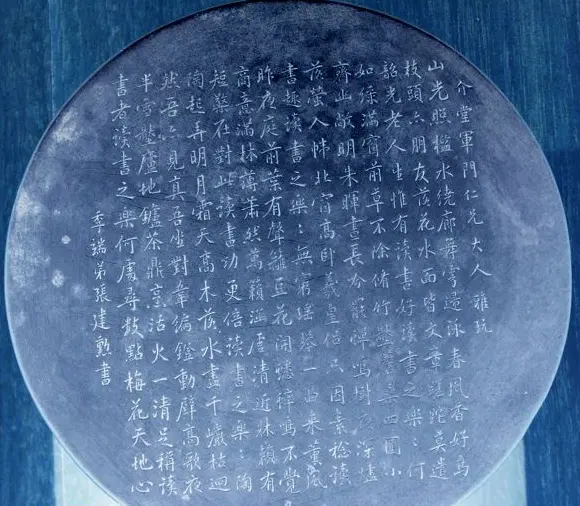 介堂軍門仁兄大人雅玩
山光照檻水繞廊舞雩遠詠春風香好鳥
枝頭亦朋友落花水面皆文章蹉跎莫遣
韶光老人生惟有讀書好讀書之樂〻何
如綠滿窗前草不除脩竹壓簷桑四圍小
齋幽敞明朱暉晝長吟罷蟬鳴樹夜深燼
落螢入幃北窗高臥羲皇侶只因素稔讀
書趣讀書之樂〻無窮瑤琴一曲來薰風
昨夜庭前葉有聲籬豆花開蟋蟀鳴不覺
商意滿林薄蕭然萬籟涵虛清近牀賴有
短檠在對此讀書功更倍讀書之樂〻陶
陶起弄明月霜天高木落水盡千巖枯迥
然吾亦見真吾坐對韋編鐙動壁高歌夜
半雪壓廬地鑪茶鼎烹活火一清足稱讀
書者讀書之樂何處尋數點梅花天地心
季端弟張建勳書